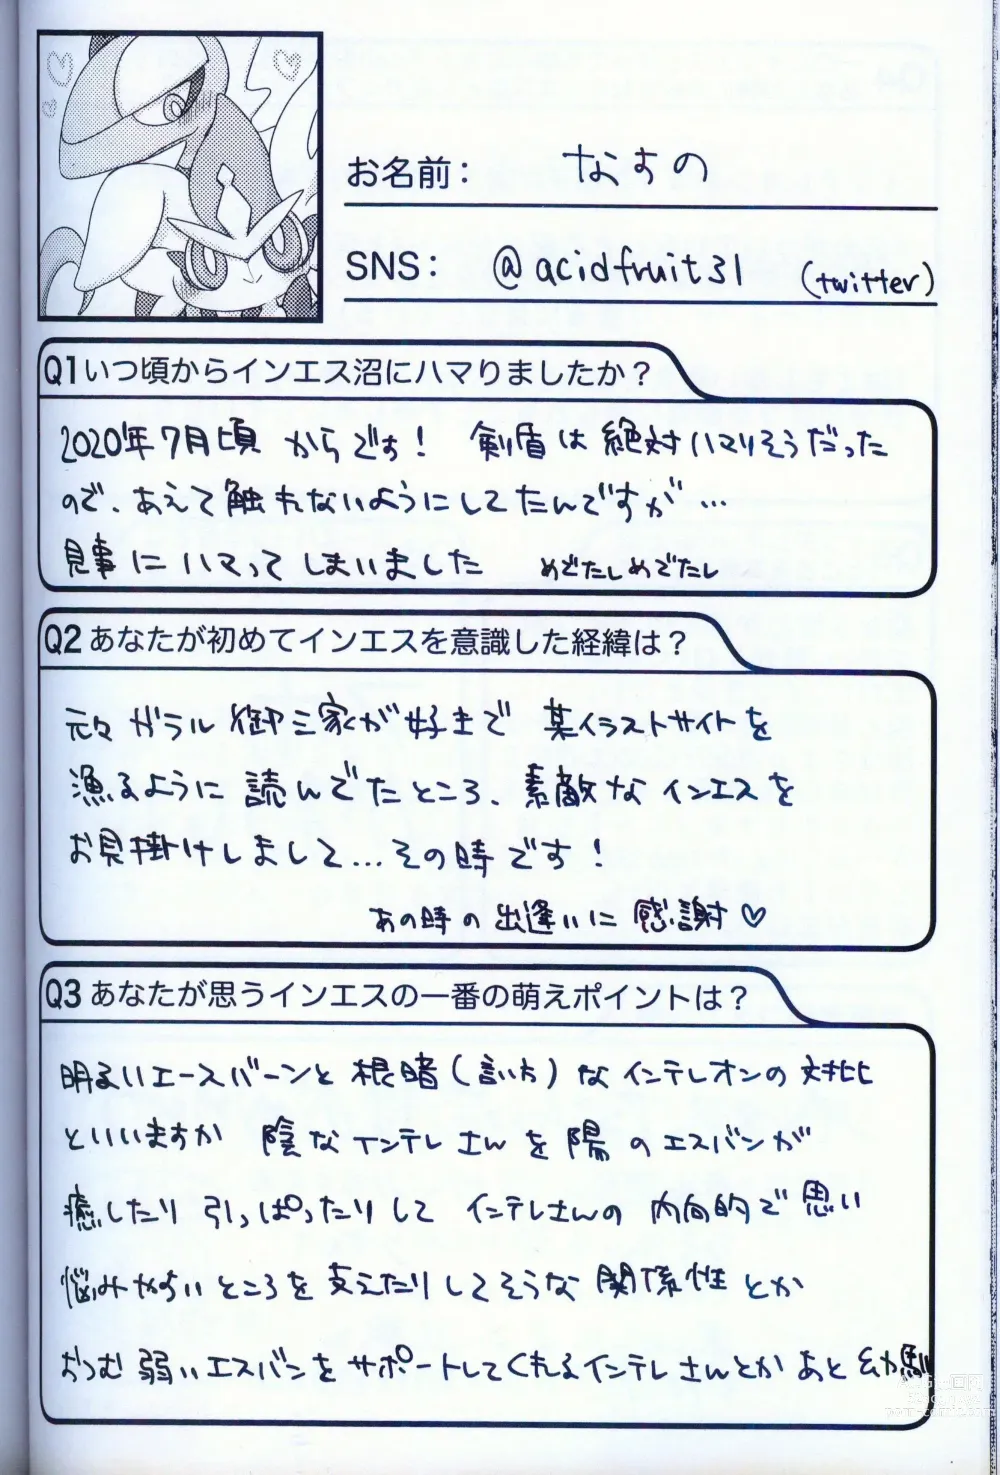 お名前: なすの
SNS: @acidfruit31 (twitter)
Q1いつ頃からインエス沼にハマりましたか？
2020年7月頃 からです！ 剣盾は絶対ハマりそうだった
ので、あえて触れないようにしてたんですが…
見事にハマってしまいました めでたしめでたし
Q2あなたが初めてインエスを意識した経緯は？
元々ガラル御三家が好きで 某イラストサイトを
漁るように読んでたところ、素敵なインエスを
お見掛けしまして…その時です！
あの時の出逢いに感謝♡
Q3あなたが思うインエスの一番の萌えポイントは？
明るいエースバーンと根暗(言い方)なインテレオンの対比
といいますか 陰なインテレさんを陽のエスバンが
癒したり引っぱったりして インテレさんの内向的で思い
悩みやすいところを支えたりしてそうな関係性とか
おつむ弱いエスバンをサポートしてくれるインテレさんとか あと